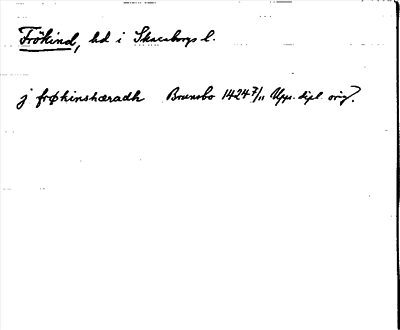 Frökind, hd i Skaraborgs l.
j frøkinshæradh Brunsbo 1424 7/11 Upps. dipl orig.